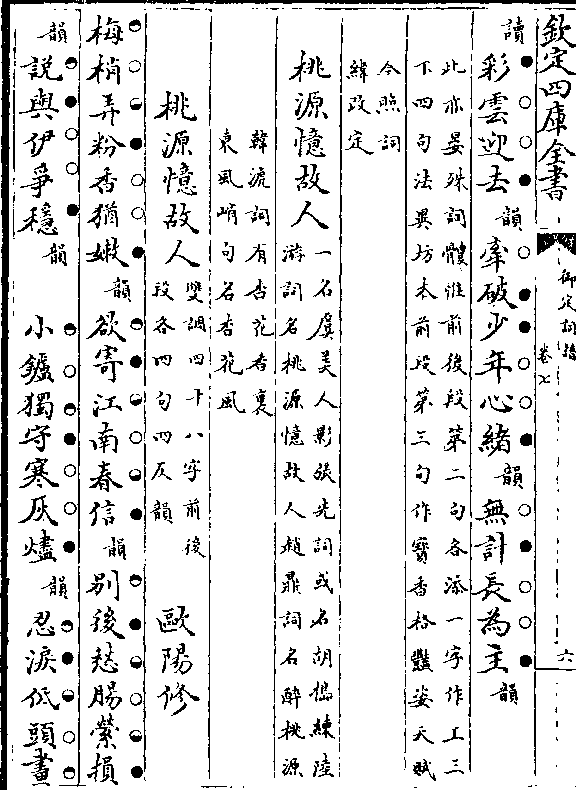 欽定四庫全書
御定詞譜
卷七
六
讀彩雲迎去韻牽破少年心緒韻無計長為主韻
此亦晏殊詞體惟前後段第二句各添一字作上三
下四句法異坊本前段第三句作寶香格豔姿天賦
今照詞
緯改定
桃源憶故人
一名虞美人影張先詞或名胡擣練陸
游詞名桃源憶故人趙鼎詞名醉桃源
韓淲詞有杏花香裏
東風峭句名杏花風
桃源憶故人
雙調四十八字前後
段各四句四仄韻
歐陽修
梅梢弄粉香猶嫩韻欲寄江南春信韻別後愁腸縈損
韻說與伊爭穩韻 小鑪獨守寒灰燼韻忍淚低頭畫